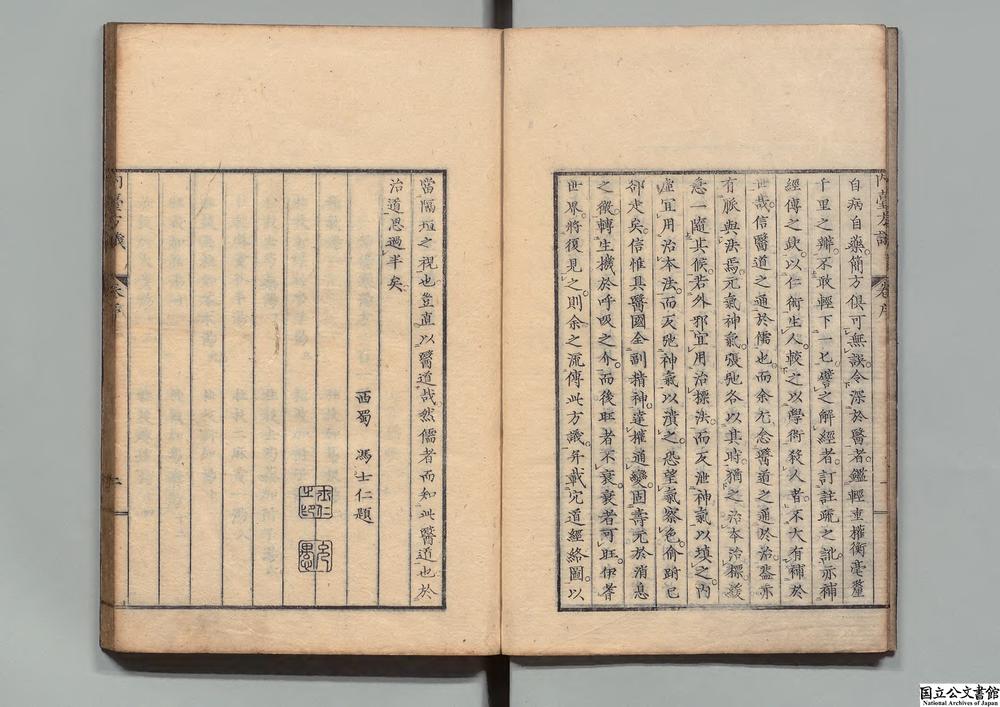 自病自藥簡方俱可無誤令深於醫者鑑輕重權衡毫釐
千里之辯不敢輕下一匕譬之解經者訂註疏之訛亦補
經傳之缺以仁術生人較之以學術殺人者不大有補於
世哉信醫道之通於儒也而余尤念醫道之通於治蓋亦
有脈與法焉元氣神氣張弛各以其時猶之治本治標緩
急一隨其候若外邪宜用治標法而反泄神氣以填之內
虛宜用治本法而反弛神氣以潰之恐望氣察色俞跗已
卻走矣信惟具醫國全副精神達權通變固壽元於消息
之微轉生機於呼吸之介而後旺者不衰衰者可旺伊耆
世界將復見之則余之流傳此方議并載宄道經絡圖以
當隔垣之視也豈直以醫道哉然儒者而知此醫道也於
治道思過半矣
西蜀 馮士仁題
士仁之印
內臺方議
卷序
二
国立公文書館
National Archives of Japan